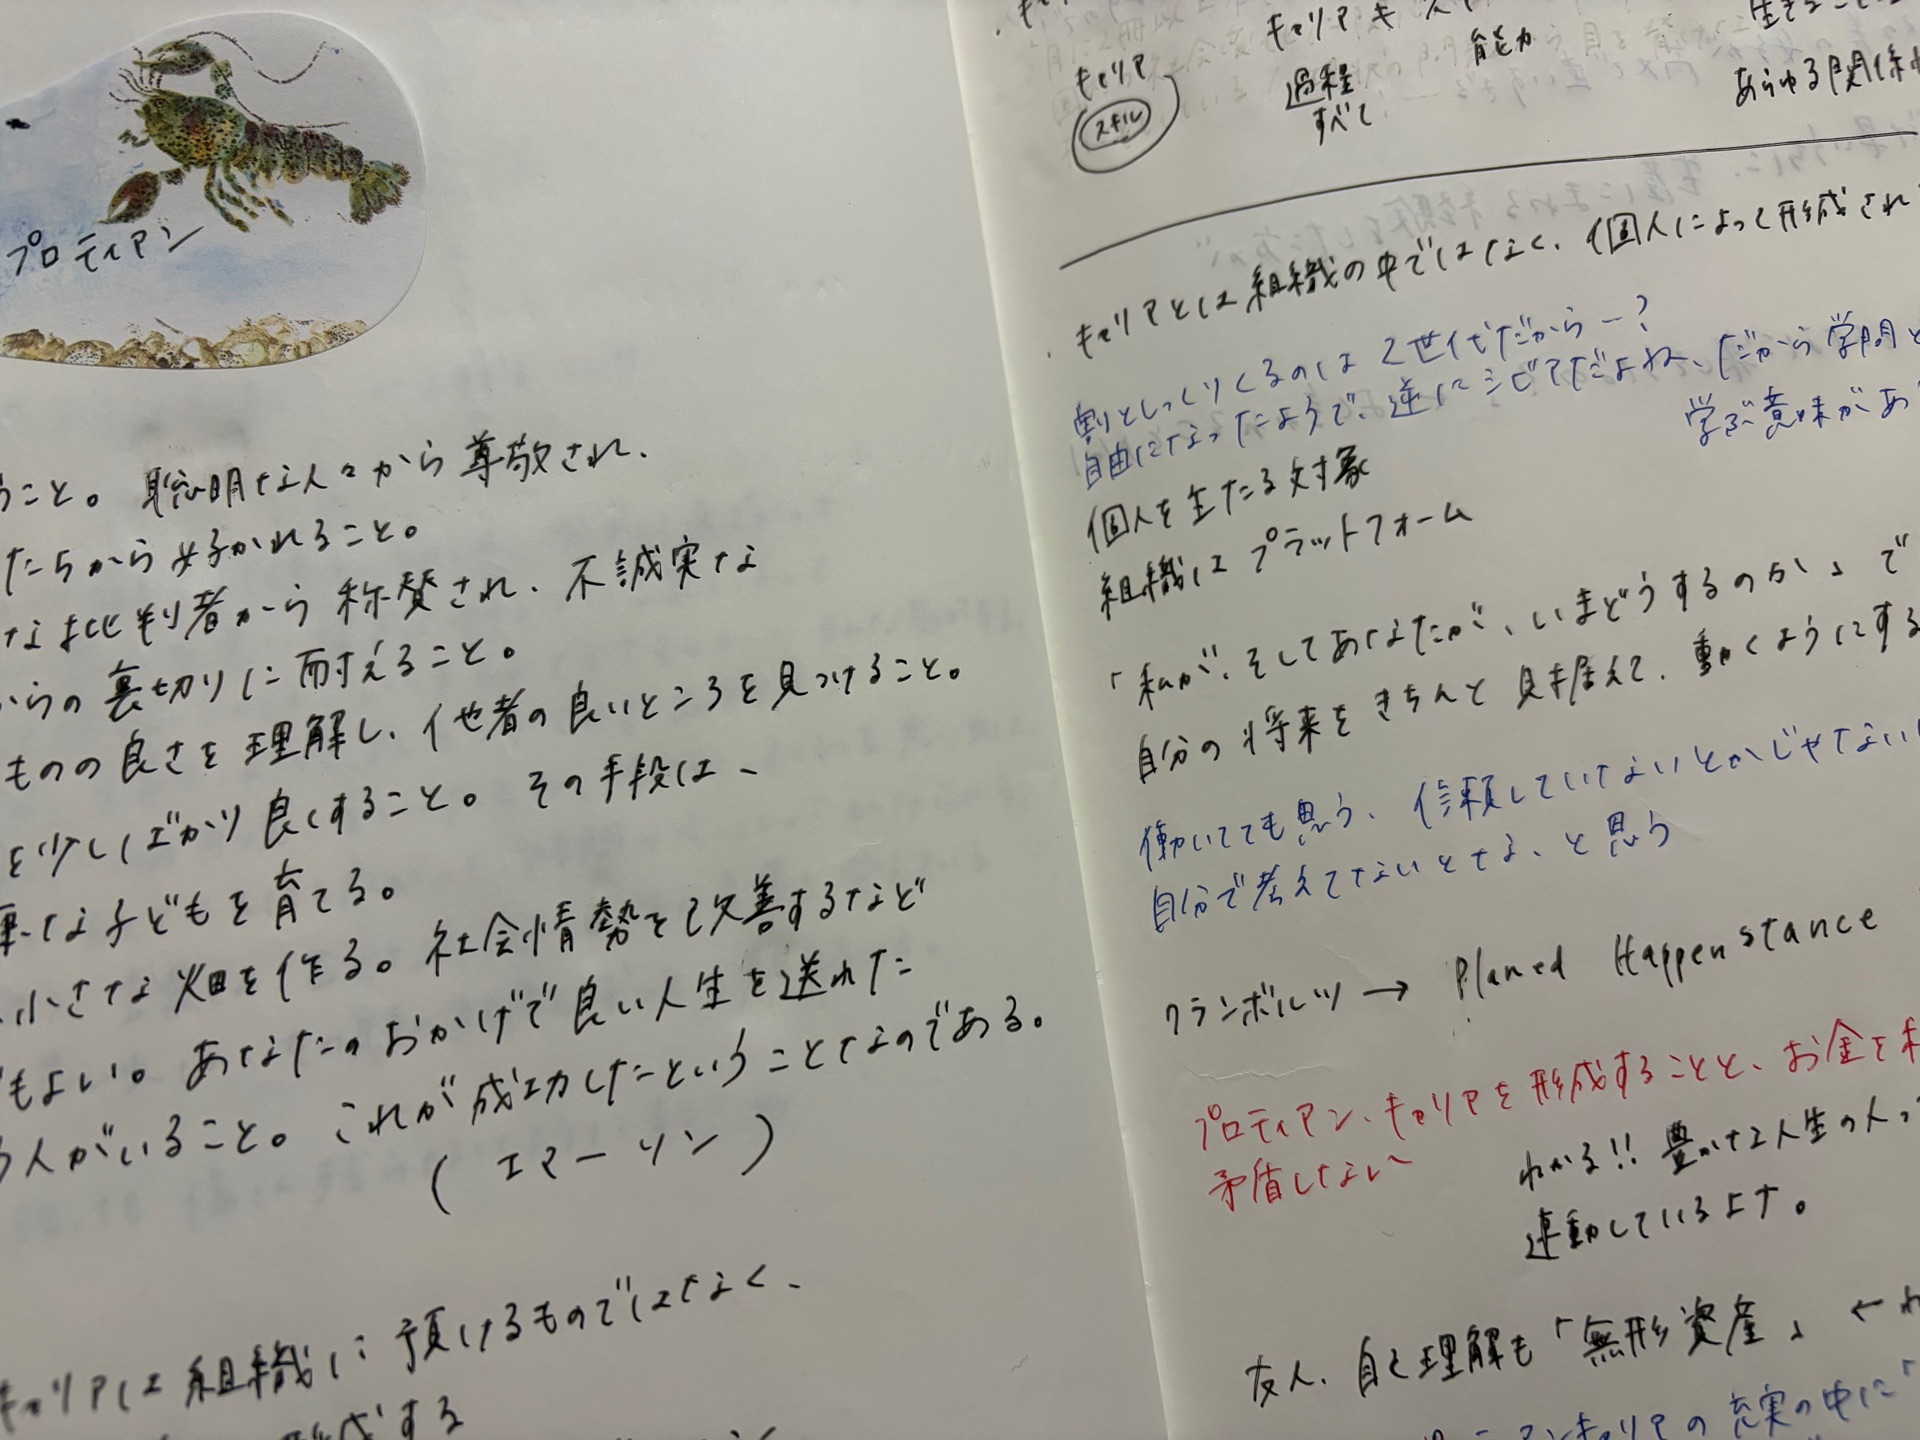 プロティアン
うこと。聡明な人々から尊敬され、
たちから好かれること。
な批判者から称賛され、不誠実な
からの裏切りに耐えること。
ものの良さを理解し、他者の良いところを見つけること。
を少しばかり良くすること。その手段は、
な子どもを育てる。
小さな畑を作る。社会情勢を改善するなど
もよい。あなたのおかげで良い人生を送れた
人がいること。これが成功したということなのである。
(エマーソン)
キャリアは組織に預けるものではなく、
形成する
キャリア
スキル
キャリアも
過程
すべて
能力
生きること
あらゆる関係
・キャリアとは組織の中ではなく、個人によって形成され
割としっくりくるのはZ世代だからー?
自由になったようで、逆にシビアだよね、だから学問と
学ぶ意味があ
個人を主たる対象
組織はプラットフォーム
「私が、そしてあなたが、いまどうするのか」で
自分の将来をきちんと見据えて、動くようにする
働いてても思う、信頼していないとかじゃない
自分で考えてないとな、と思う
クランボルツ → Planed Happenstance
プロティアン・キャリアを形成することと、お金を
矛盾しない
わかる!! 豊かな人生の人っ
連動しているよナ。
友人、自己理解も「無形資産」 ←
キャリアの充実の中に「